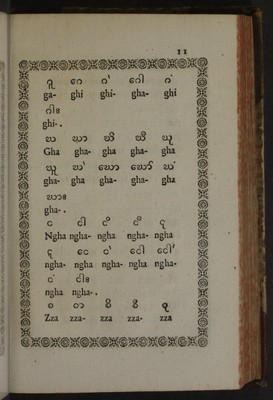 11
ဂူ ဂေ ဂဲ ဂေါ ဂံ
ga- ghi ghi- gha- ghi
ဂါး
ghi-.
ဃ ဃာ ဃိ ဃီ ဃု
Gha gha- gha gha- gha
ဃူ ဃဲ ဃော ဃော် ဃံ
gha- gha gha- gha- gha
ဃား
gha-.
င ငါ ငိ ငီ ငု
Ngha ngha- ngha ngha- ngha
ငူ ငေ ငဲ ငေါ ငေါ်
ngha- ngha ngha- ngha ngha-
ငံ ငါး
ngha ngha-.
စ စာ စိ စီ စု
Zza zza- zza zza- zza